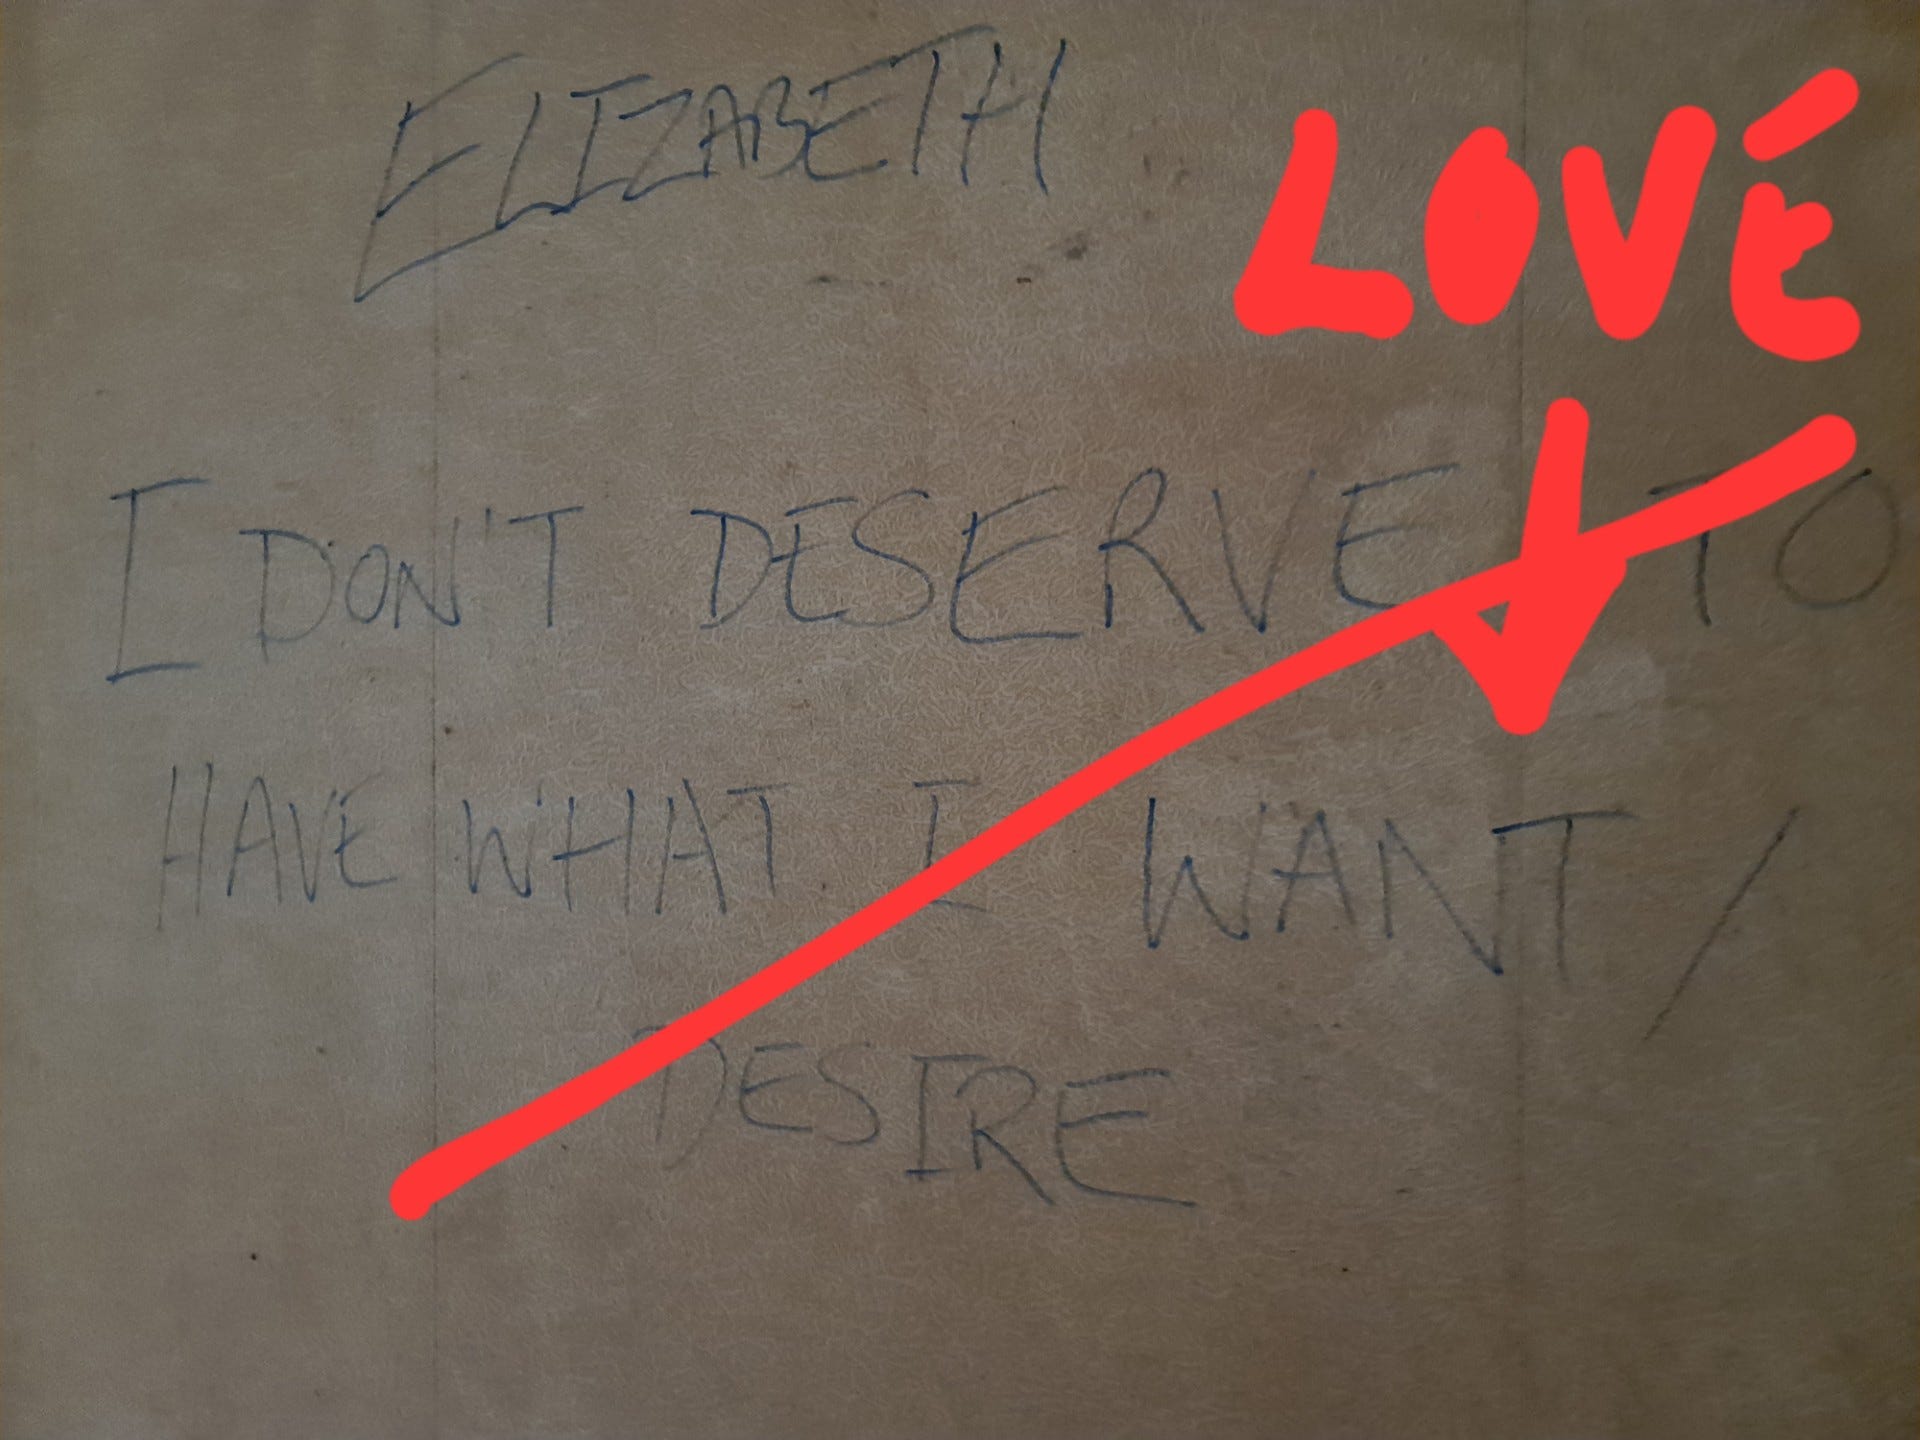 ELIZABETH
LOVÉ
I DON'T DESERVE TO
HAVE WHAT I WANT /
DESIRE